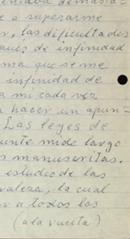 e a superarme
r, las dificultades
ués de infinidad
nza que se me
infinidad de
mi cada vez
a hacer un apun-
Las leyes de
unte mido largo
s manuscritas.
estudio de las
raleza, la cual
r a todos los
(a la vuelta)